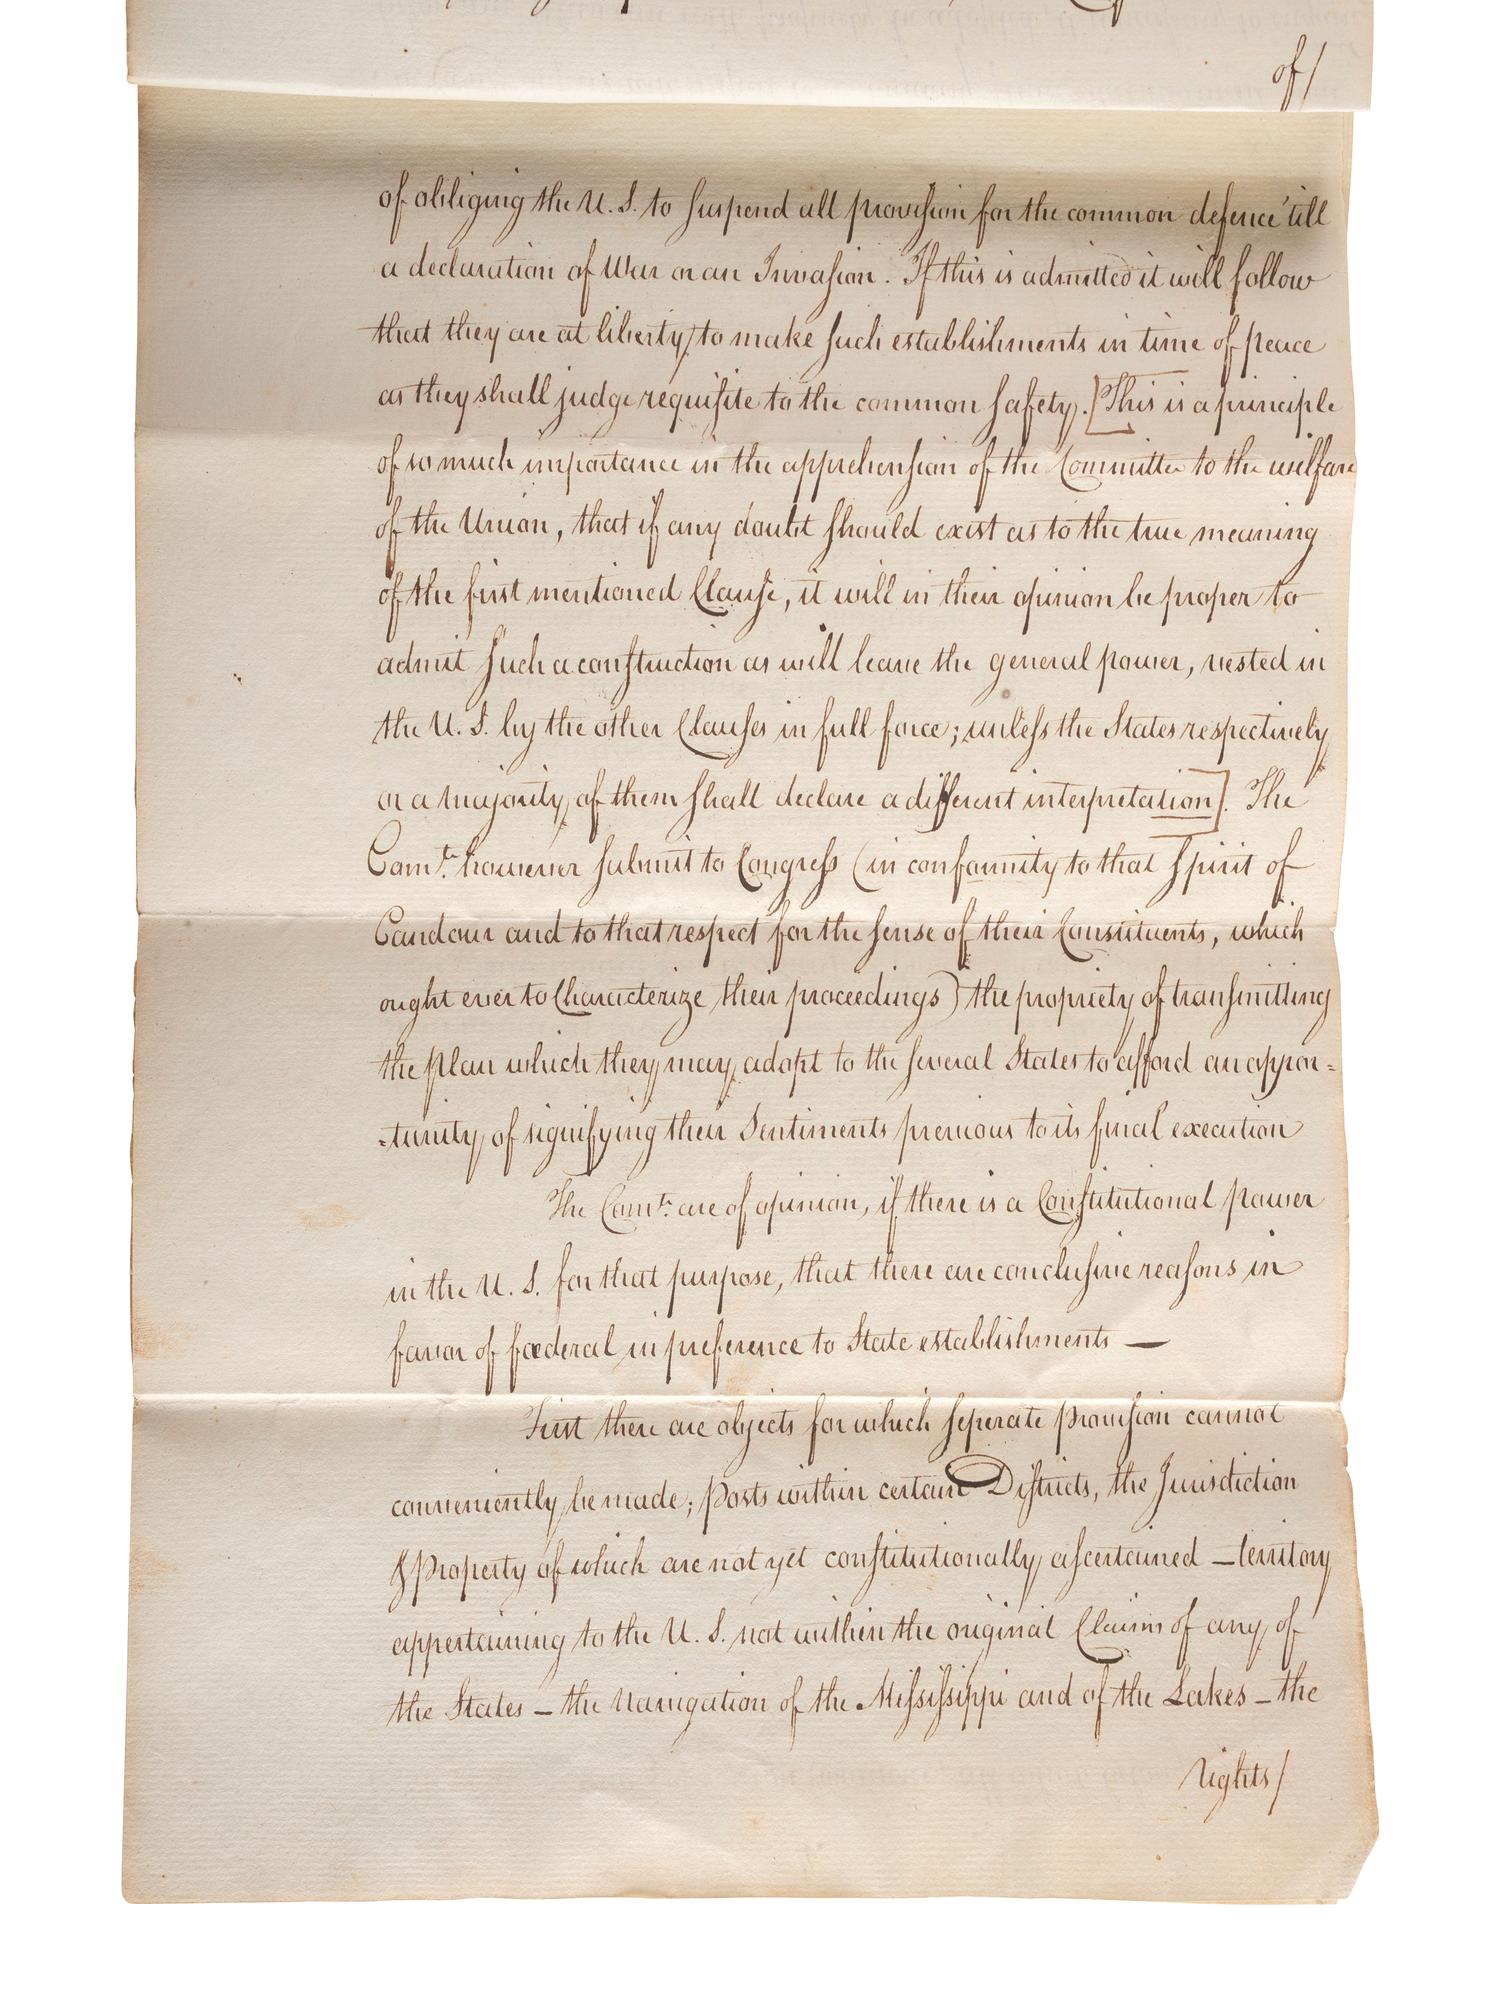 of/
of obliging the U. S. to suspend all provision for the common defence 'till
a declaration of War or an Invasion. If this is admitted it will follow
that they are at liberty to make such establishments in time of peace
as they shall judge requisite to the common safety. [This is a principle
of so much importance in the apprehension of the Committee to the welfare
of the Union, that if any doubt should exist as to the true meaning
of the first mentioned Clause, it will in their opinion be proper to
admit such a construction as will leave the general power, vested in
the U. S. by the other Clauses in full force; unless the States respectively
or a majority of them shall declare a different interpretation]. The
Comte. however submit to Congress (in conformity to that spirit of
Candour and to that respect for the sense of their Constituents, which
ought ever to Characterize their proceedings) the propriety of transmitting
the plan which they may adopt to the several States to afford an oppor=
=tunity of signifying their Sentiments previous to its final execution
The Comte. are of opinion, if there is a Constitutional power
in the U. S. for that purpose, that there are conclusive reasons in
favor of fœderal in preference to State establishments —
First there are objects for which seperate provision cannot
conveniently be made; posts within certain Districts, the Jurisdiction
& property of which are not yet constitutionally ascertained — territory
appertaining to the U. S. not within the original Claims of any of
the States — the Navigation of the Mississippi and of the Lakes — the
rights/